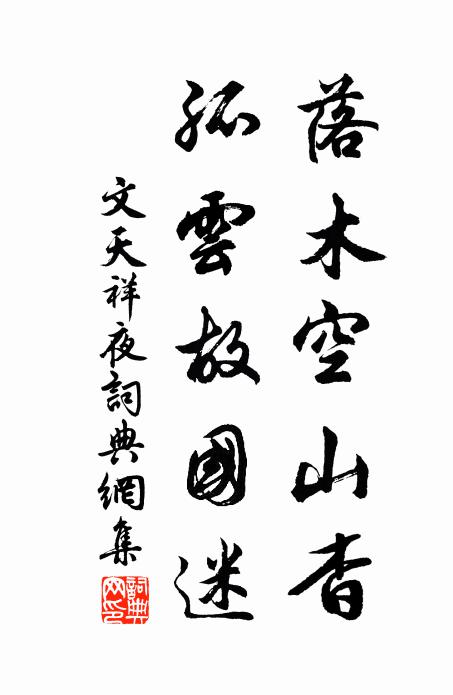 落木空山杳
孤雲故國迷
文天祥夜詞典網集
詞典
网印